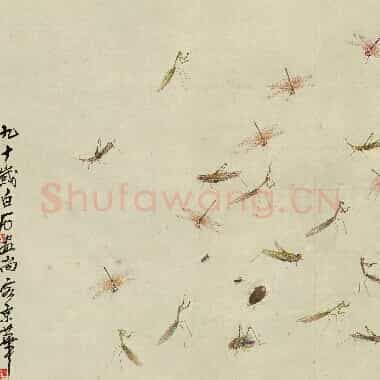 九十歲白石畫尚客京華
Shufawang.CN